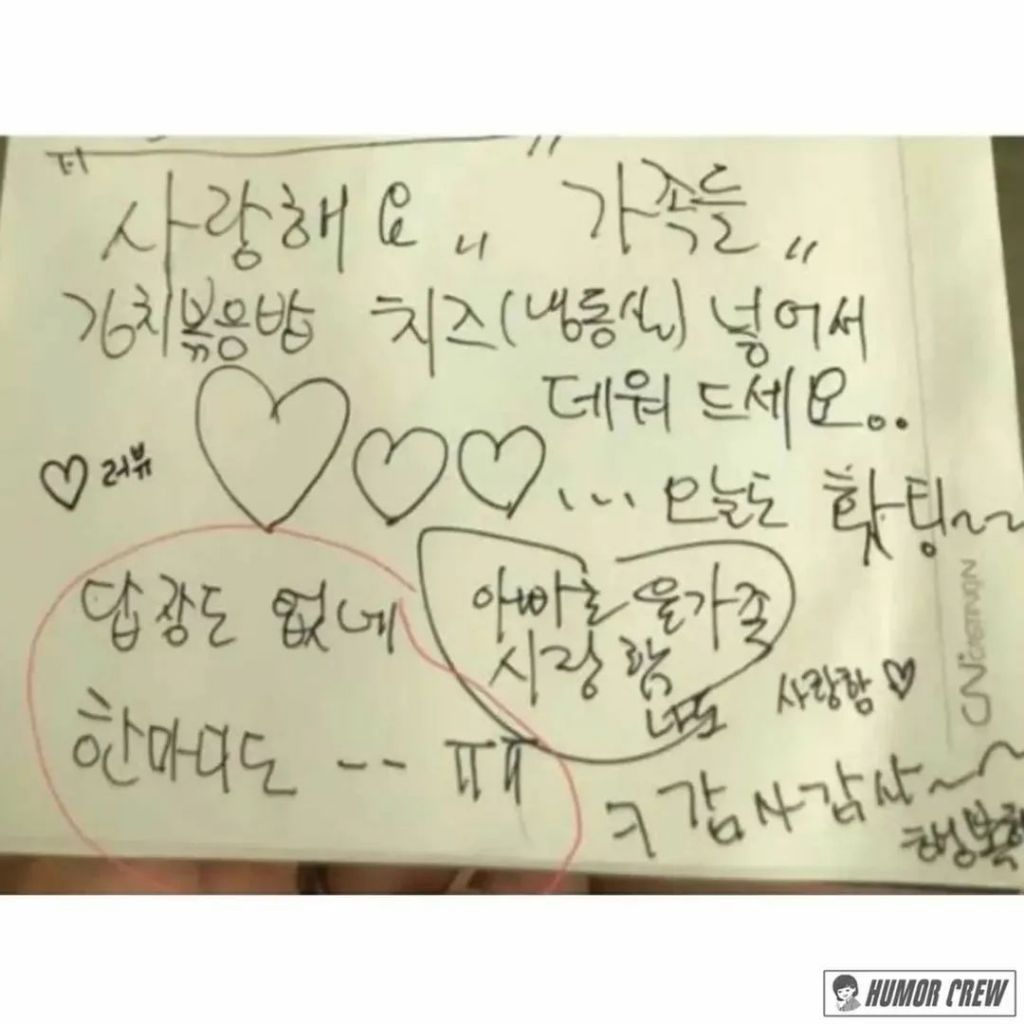 사랑해요,, 가족들,,
김치볶음밥 치즈(냉동실) 넣어서
데워 드세요..
♡러뷰
... 오늘도 홧팅~~
답장도 없네
한마디도 -- ㅠㅠ
아빠도 울가족
사랑함
나도
사랑함♡
ㅋ감사감사~~
행복해
HUMOR CREW